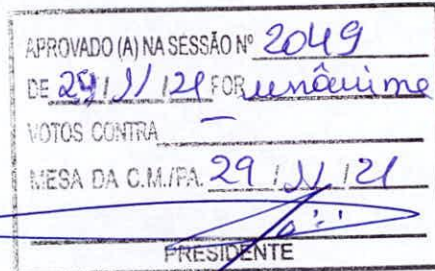 APROVADO (A) NA SESSÃO Nº 2049
DE 29/11/21 FOR unânime
VOTOS CONTRA —
MESA DA C.M./PA. 29/11/21
PRESIDENTE